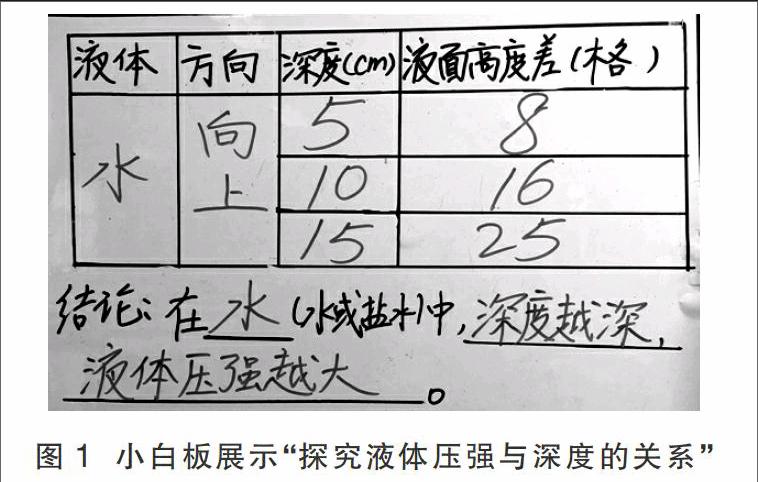 液体 方向 深度(cm) 液面高度差(格)
水 向上 5 8
10 16
15 25
结论:在水(水或盐水)中,深度越深,
液体压强越大。
图 1 小白板展示“探究液体压强与深度的关系”